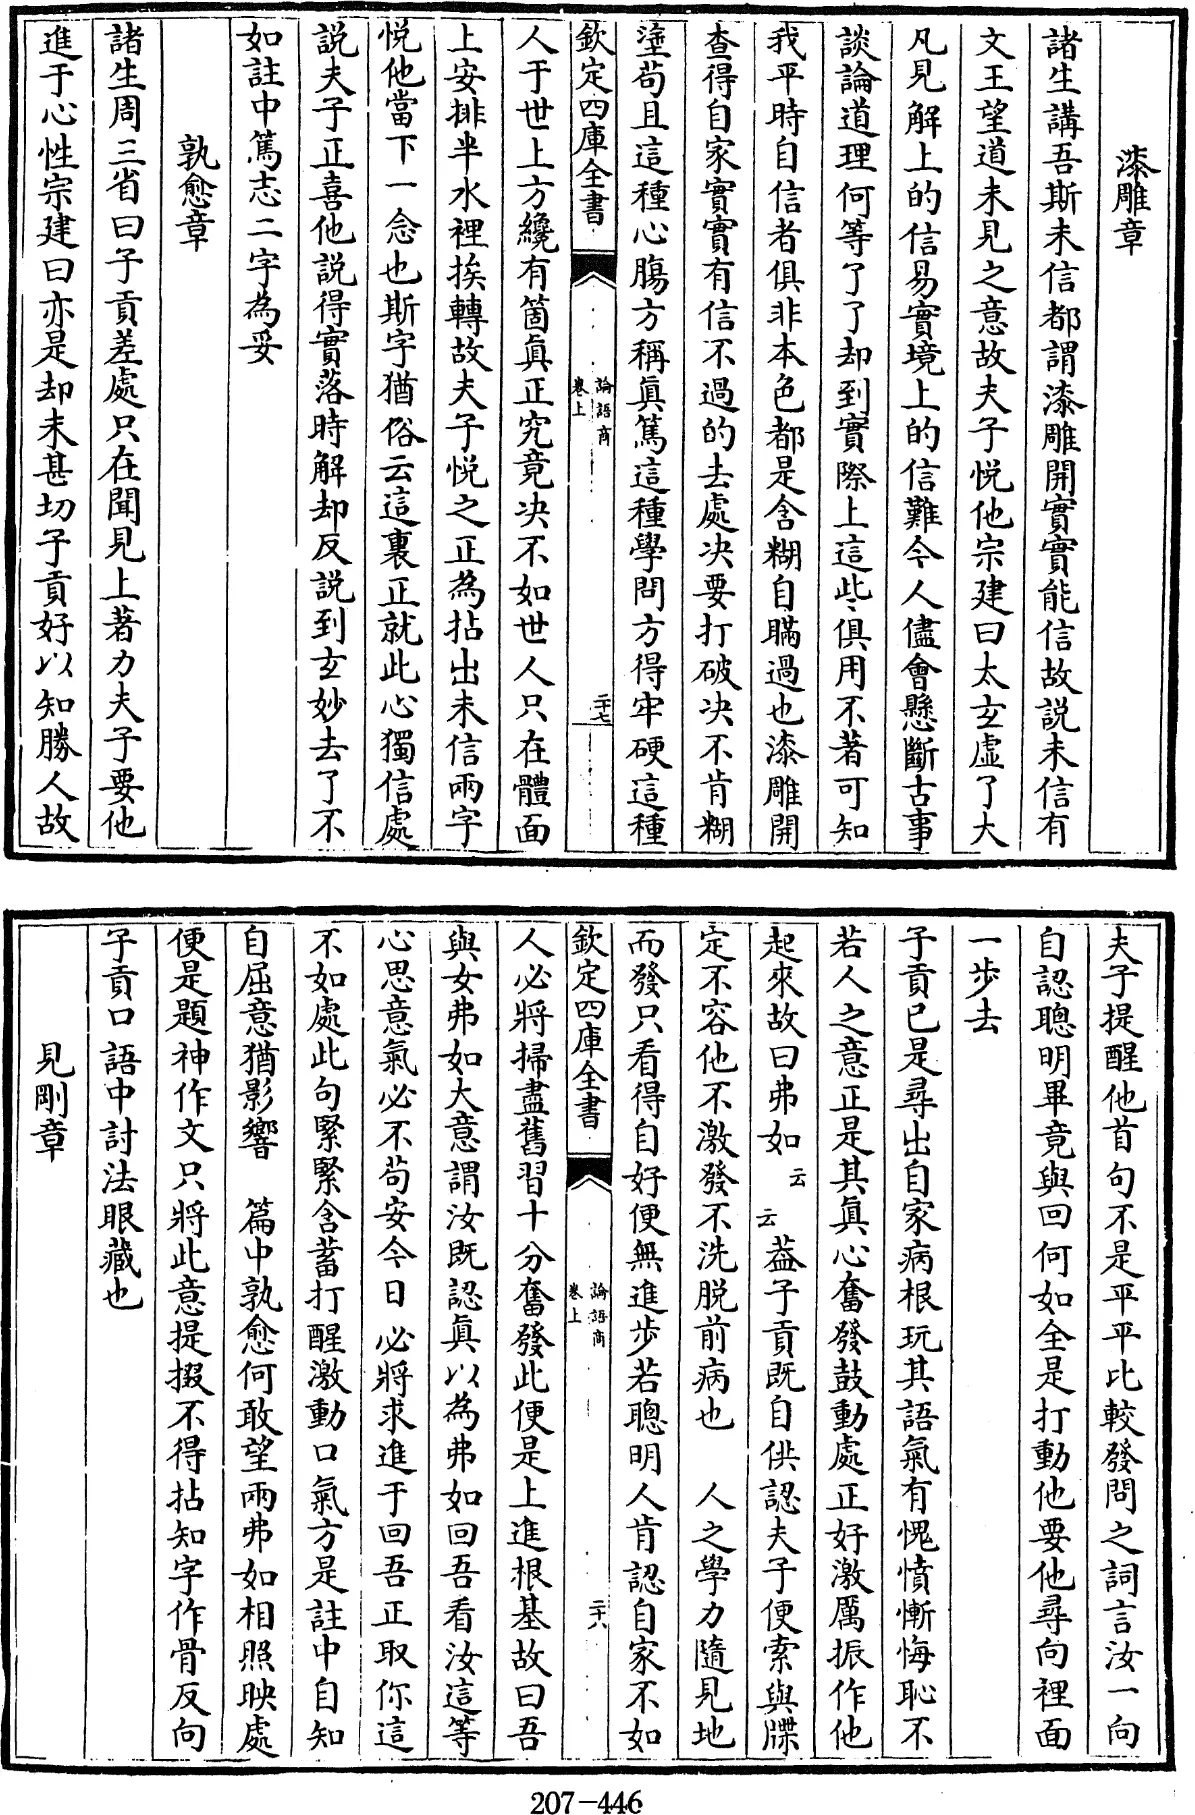 漆雕章
諸生講吾斯未信都謂漆雕開實實能信故説未信有
文王望道未見之意故夫子悦他宗建曰太玄虛了大
凡見解上的信易實境上的信難今人儘會懸斷古事
談論道理何等了了却到實際上這些俱用不著可知
我平時自信者俱非本色都是含糊自瞞過也漆雕開
查得自家實實有信不過的去處决要打破决不肯糊
塗苟且這種心腸方稱眞篤這種學問方得牢硬這種
欽定四庫全書
論語商
卷上
二十七
人于世上方纔有箇眞正究竟决不如世人只在體面
上安排半水裡挨轉故夫子悦之正為拈出未信兩字
悦他當下一念也斯字猶俗云這裏正就此心獨信處
説夫子正喜他説得實落時解却反説到玄妙去了不
如註中篤志二字為妥
孰愈章
諸生周三省曰子貢差處只在聞見上著力夫子要他
進于心性宗建曰亦是却未甚切子貢好以知勝人故
夫子提醒他首句不是平平比較發問之詞言汝一向
自認聰明畢竟與回何如全是打動他要他尋向裡面
一步去
子貢已是尋出自家病根玩其語氣有愧憤慚悔恥不
若人之意正是其眞心奮發鼓動處正好激厲振作他
起來故曰弗如云云葢子貢既自供認夫子便索與牒
定不容他不激發不洗脱前病也　人之學力隨見地
而發只看得自好便無進步若聰明人肯認自家不如
欽定四庫全書
論語商
卷上
二十八
人必將掃盡舊習十分奮發此便是上進根基故曰吾
與女弗如大意謂汝既認眞以為弗如回吾看汝這等
心思意氣必不苟安今日必將求進于回吾正取你這
不如處此句緊緊含蓄打醒激動口氣方是註中自知
自屈意猶影響　篇中孰愈何敢望兩弗如相照映處
便是題神作文只將此意提掇不得拈知字作骨反向
子貢口語中討法眼藏也
見剛章
207-446